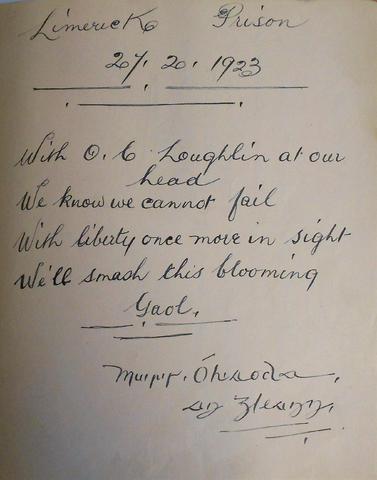 Limerick Prison
27. 20. 1923
With O. C. Loughlin at our
head
We know we cannot fail
With liberty once more in sight
We'll smash this blooming
Gaol.
an Gleann.